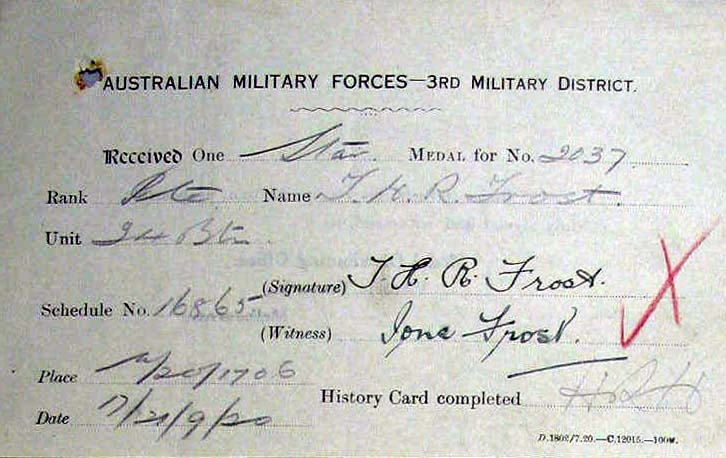 AUSTRALIAN MILITARY FORCES—3RD MILITARY DISTRICT.
Received One Star MEDAL for No. 2037
Rank Pte Name T. H. R. Frost.
Unit 24 Btn
(Signature) T. H. R. Frost.
Schedule No. 16865
(Witness) Ione Frost.
Place
History Card completed
Date 9/20
D.1802/7.20.—C.12015.—100M.